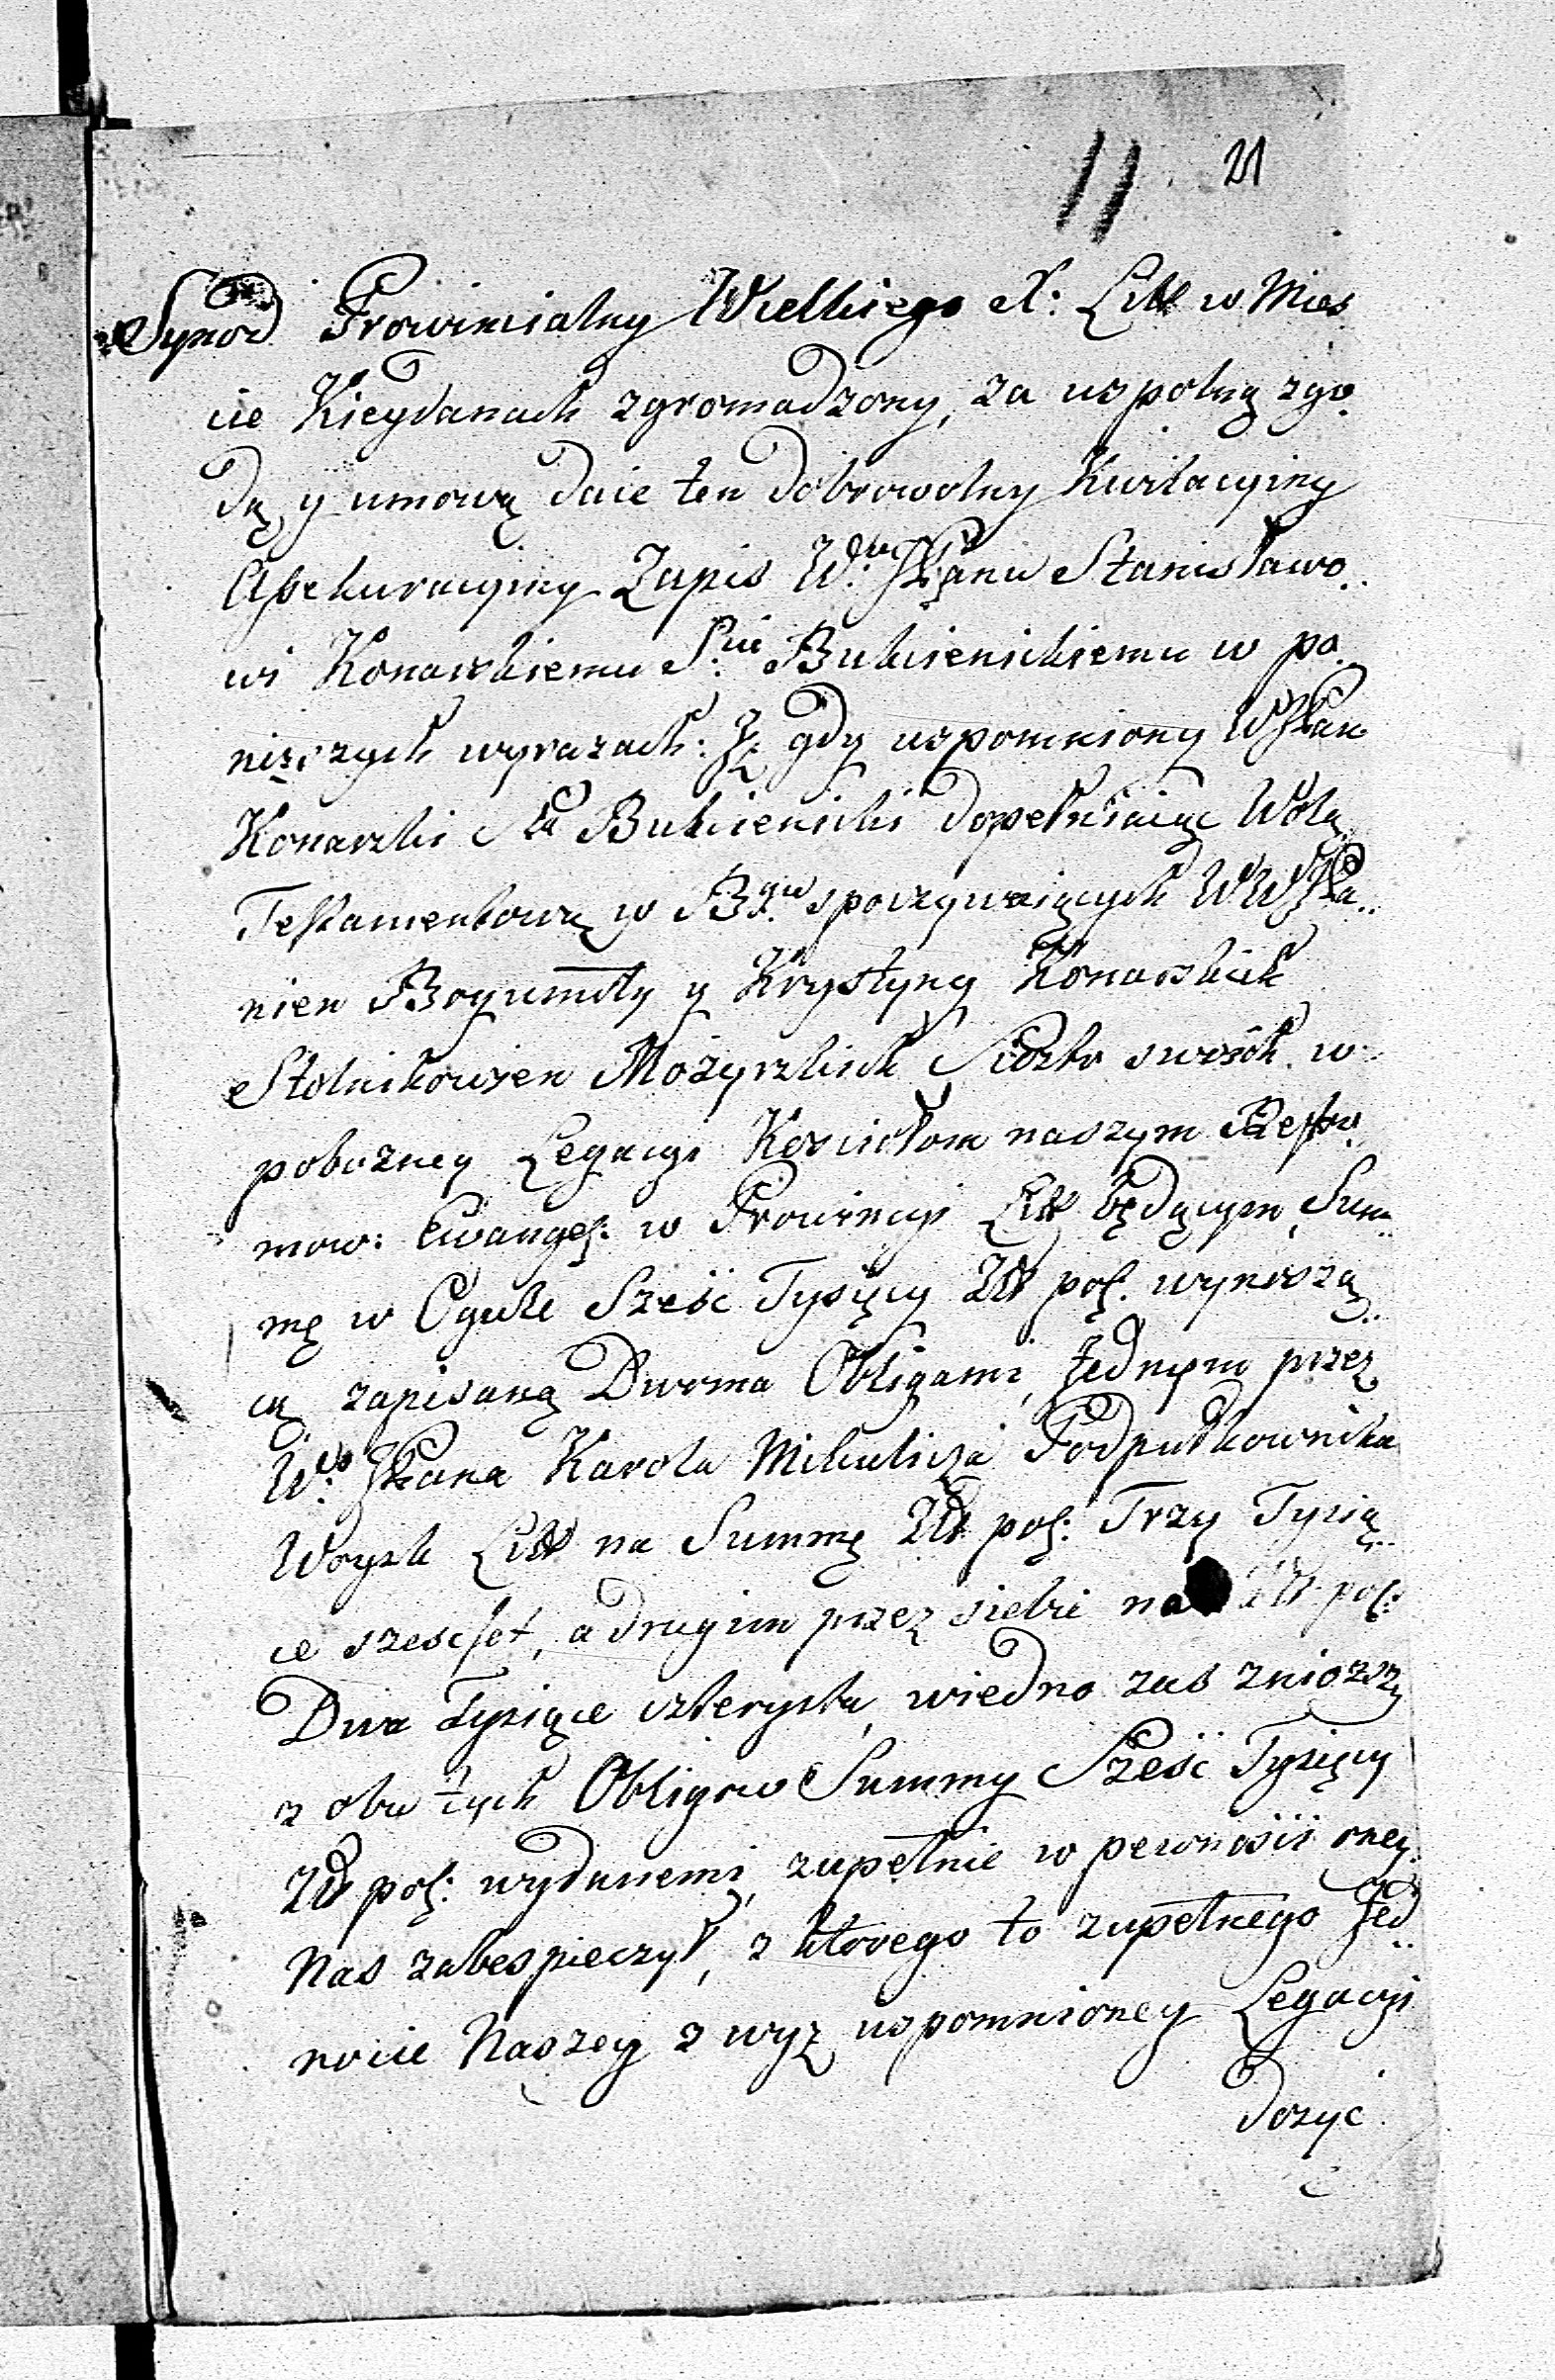 11. 21
Synod Prowincialny Wielkiego X: Litt w Mies
cie Kieydanach zgromadzony, za uspolną zgo
dą y umową daie ten dobrowolny Kwitacyiny
Assekuracyiny Zapis W: JPanu Stanisławo
wi Konarskiemu Bukienickiemu w po
niższych wyrazach: Iż gdy uspomniony WJPan
Konarski Sta Bukienicki dopełniaiąc Wolą
Testamentową w Bgu spoczywaiących WWJPa
nien Bogumiły y Krystyny Konarskich
Stolnikowien Mozyrskich Siostr swoich w
pobożney Legacyi Kosciołom naszym Refor
mow: Ewangel: w Prowincyi Litt będącym, Sum
mę w Ogule Sześć Tysięcy Złł pol: wynoszą
cą zapisaną Dwoma Obligami, Jednym przez
W: JPana Karola Mikulicza Podpułkownika
Woysk Litt na Summę Złł pol: Trzy Tysią
ce szescset, a drugim przez siebie na Złł pol:
Dwa Tysiące czterysta, wiedno zas zniozszy
z obu tych Obligow Summy Sześć Tysięcy
Złł pol: wydanemi, zupełnie w pewności oney
Nas zabespieczył, z ktorego to zupełnego Jed
nocie Naszey z wyz uspomnioney Legacyi
dosyc